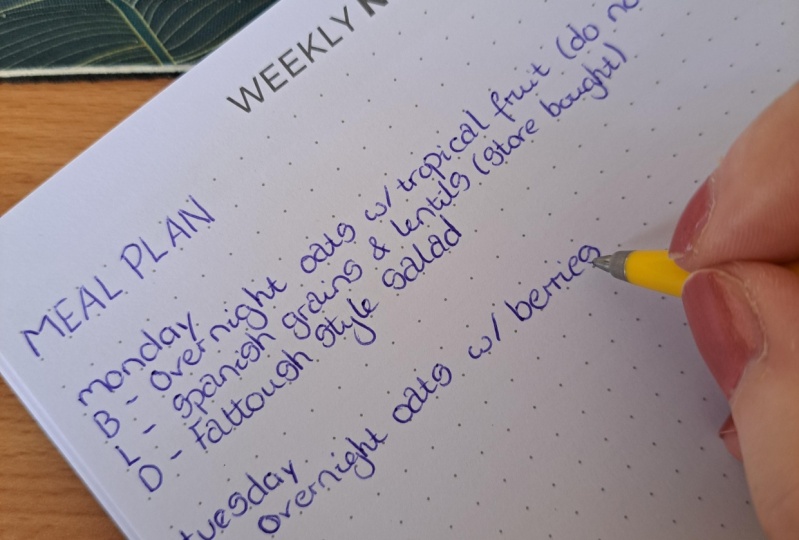 WEEKLY
MEAL PLAN
monday
B - Overnight oats w/ tropical fruit (do
L - Spanish grains & lentils (store bought)
D - Fattoush style salad
tuesday
overnight oats w/ berries